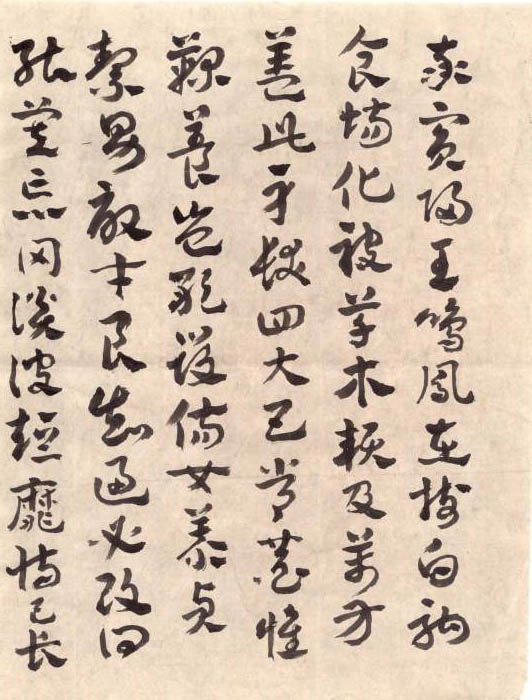 率賓歸王鳴鳳在樹白駒
食場化被草木賴及萬方
蓋此身髮四大五常恭惟
鞠養豈敢毀傷女慕貞
絜男效才良知過必改得
能莫忘罔談彼短靡恃己長